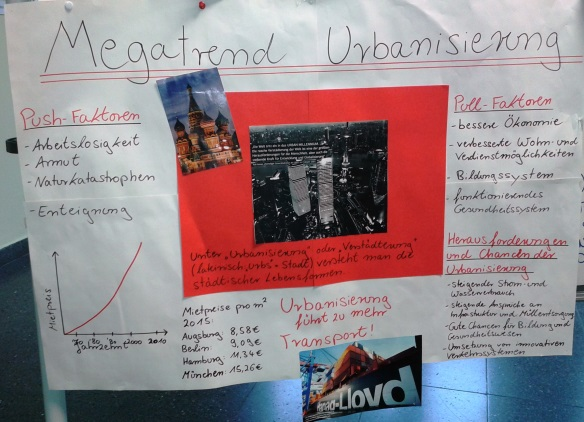 Megatrend Urbanisierung
Push-Faktoren
- Arbeitslosigkeit
- Armut
- Naturkatastrophen
- Enteignung
Mietpreis
70 '80 '90 2000 2010
Jahrzehnt
Unter „Urbanisierung" oder „Verstädterung"
(lateinisch „Urbs" = Stadt) versteht man die
städtischer Lebensformen.
Mietpreise pro m²
2015:
Augsburg 8,58€
Berlin: 9,09€
Hamburg: 11,34€
München: 15,26€
Urbanisierung
führt zu mehr
Transport!
Lloyd
Pull-Faktoren
- bessere Ökonomie
- verbesserte Wohn- und
Vedienstmöglichkeiten
- Bildungssystem
- fonktionierendes
Gesundheitssystem
Herausforderungen
und Chancen der
Urbanisierung
- steigender Strom- und
Wasserverbrauch
- steigende Ansprüche an
Infrastruktur und Müllentsorgung
- Gute Chancen für Bildung und
Gesundheitswesen
- Umsetzung von innovativen
Verkehrssystemen